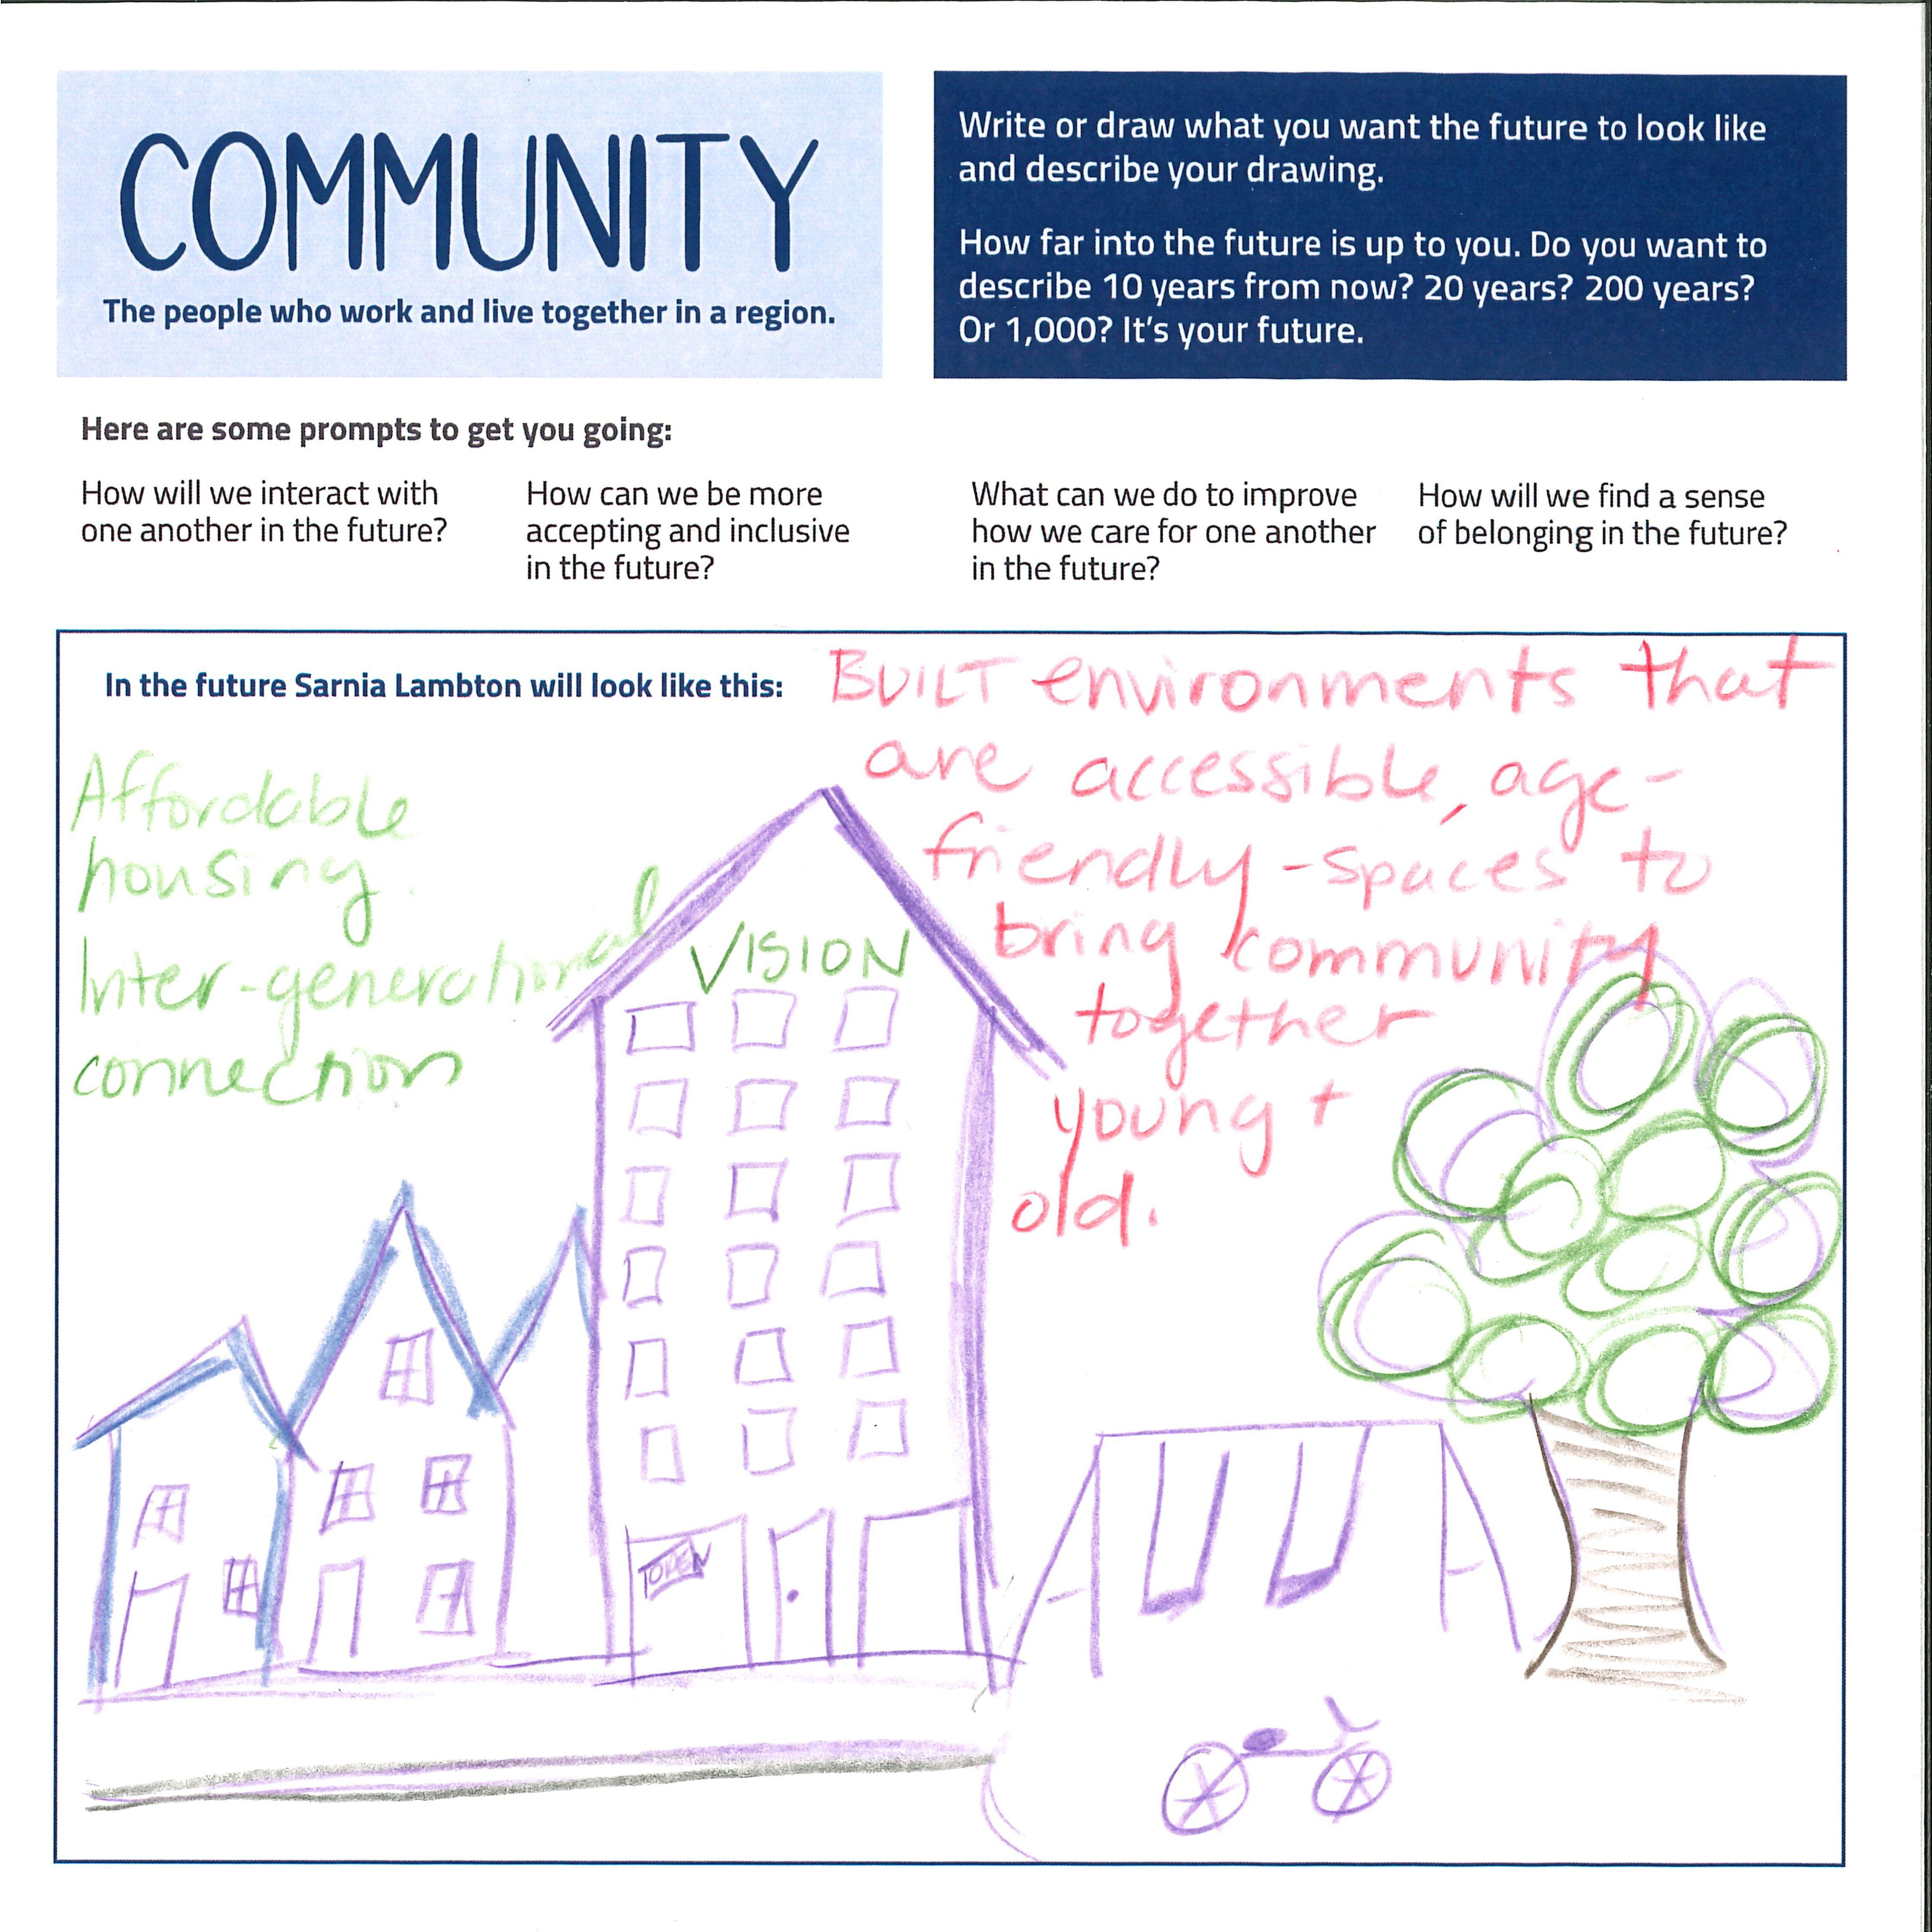 COMMUNITY
The people who work and live together in a region.
Write or draw what you want the future to look like
and describe your drawing.
How far into the future is up to you. Do you want to
describe 10 years from now? 20 years? 200 years?
Or 1,000? It's your future.
Here are some prompts to get you going:
How will we interact with
one another in the future?
How can we be more
accepting and inclusive
in the future?
What can we do to improve
how we care for one another
in the future?
How will we find a sense
of belonging in the future?
In the future Sarnia Lambton will look like this:
BUILT environments that
are accessible, age-
friendly-spaces to
bring community
together
young +
old.
Affordable
housing.
Inter-generational
connection
VISION
OPEN